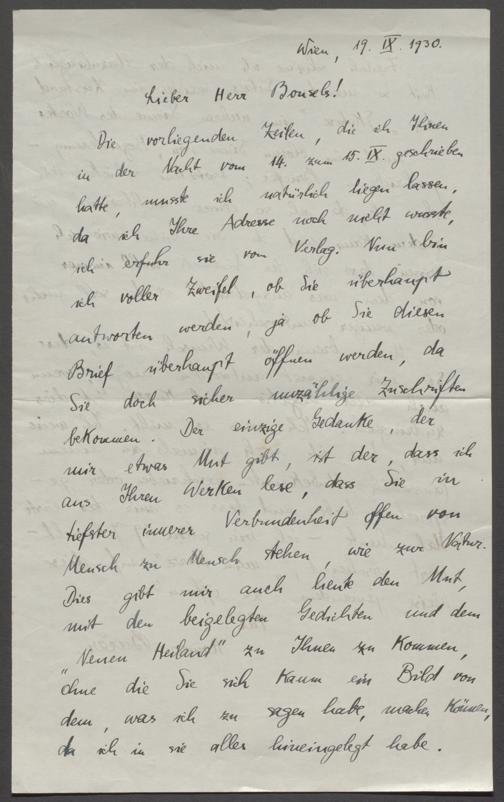 Wien, 19. IX. 1930.
Lieber Herr Bonsels!
Die vorliegenden Zeilen, die ich Ihnen
in der Nacht vom 14. zum 15. IX. geschrieben
hatte, musste ich natürlich liegen lassen,
da ich Ihre Adresse noch nicht wusste,
ich erfuhr sie vom Verlag. Nun bin
ich voller Zweifel, ob Sie überhaupt
antworten werden, ja ob Sie diesen
Brief überhaupt öffnen werden, da
Sie doch sicher unzählige Zuschriften
bekommen. Der einzige Gedanke, der
mir etwas Mut gibt, ist der, dass ich
aus Ihren Werken lese, dass Sie in
tiefster innerer Verbundenheit offen von
Mensch zu Mensch stehen, wie zur Natur.
Dies gibt mir auch heute den Mut,
mit den beigelegten Gedichten und dem
"Neuen Heiland" zu Ihnen zu kommen,
ohne die Sie sich kaum ein Bild von
dem, was ich zu sagen habe, machen können,
da ich in sie alles hineingelegt habe.